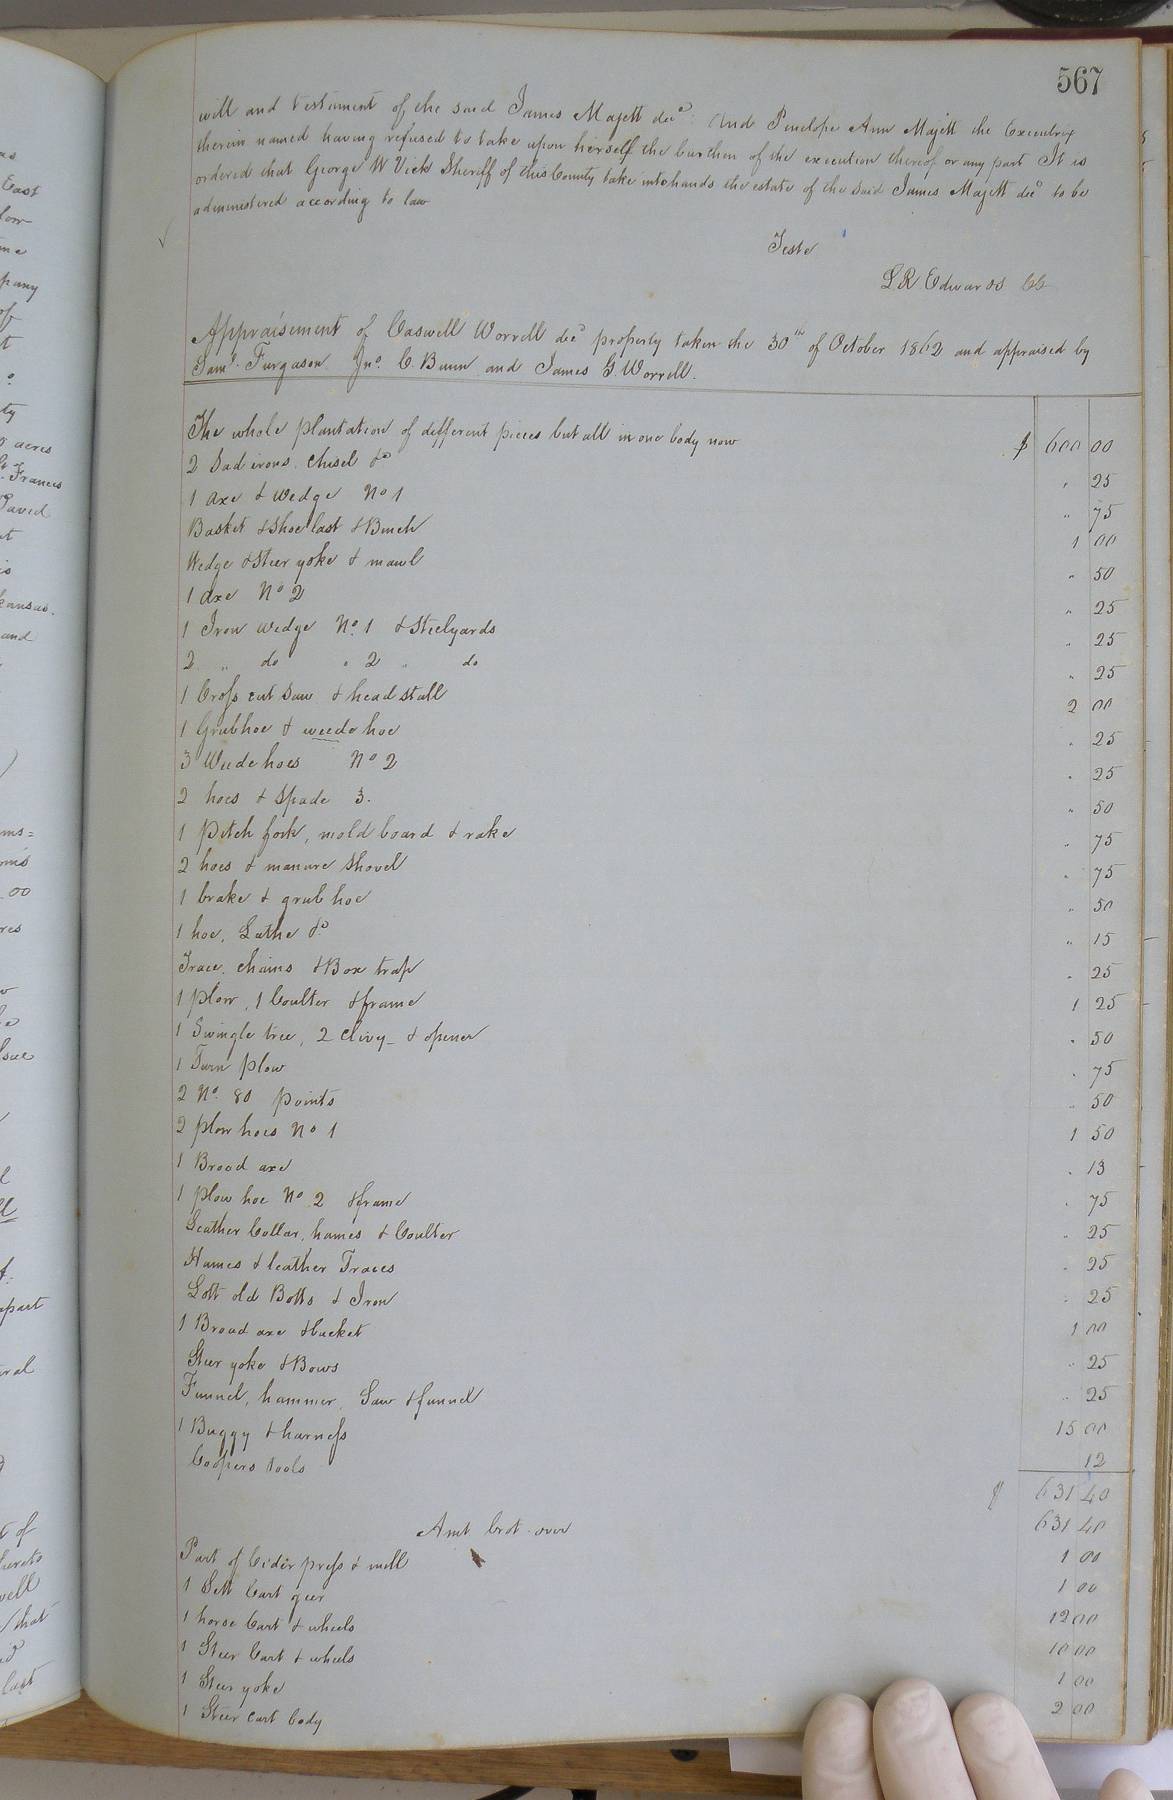 567
will and testiment of the said James Majett decd. And Penelope Ann Majett the Executrix
therein named having refused to take upon herself the burthen of the execution thereof or any part It is
ordered that George W Vick Sheriff of this County take into hands the estate of the said James Majett decd to be
administered according to law
Teste
L R Edwards CC
Appraisement of Caswell Worrell decd property taken the 30th of October 1862 and appraised by
Saml. Furgason Jno. C. Bunn and James G. Worrell.
The whole plantation of different pieces but all in one body now $ 600 00
2 Sad irons, chisel &c " 25
1 axe & wedge No 1 " 75
Basket & Shoe last & Bench 1 00
Wedge & Steer yoke & mawl " 50
1 axe No 2 " 25
1 Iron wedge No. 1 & Steelyards " 25
2 " do " 2 " do " 25
1 Cross cut Saw & head stall 2 00
1 Grubhoe & weede hoe " 25
3 Weede hoes No 2 " 25
2 hoes & Spade 3. " 50
1 Pitch fork, mold board & rake " 75
2 hoes & manure Shovel " 75
1 brake & grub hoe " 50
1 hoe, Lathe &c " 15
Trace chains & Box trap " 25
1 plow, 1 Coulter & frame 1 25
1 Swingle tree, 2 Clivy_ & opener " 50
1 Turn plow " 75
2 No. 80 points " 50
2 plow hoes No 1 1 50
1 Broad axe " 13
1 plow hoe No. 2 & frame " 75
Leather Collar, hames & Coulter " 25
Hames & leather Traces " 25
Lott old Bolts & Iron " 25
1 Broad axe & bucket 1 00
Steer yoke & Bows " 25
Funnel, hammer, Saw & funnel " 25
1 Buggy & harness 15 00
Coopers tools 12
$ 631 40
Amt brot over 631 40
Part of Cider press & mill 1 00
1 Sett Cart geer 1 00
1 horse Cart & wheels 12 00
1 Steer Cart & wheels 10 00
1 Steer yoke 1 00
1 Steer cart body 2 00